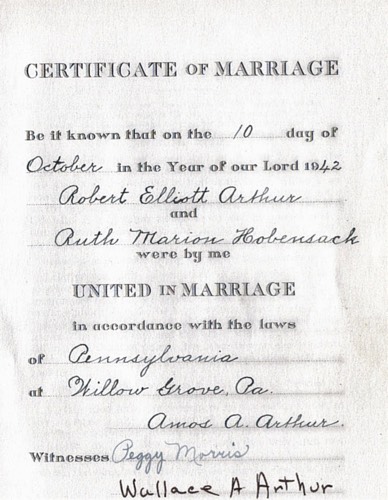 CERTIFICATE OF MARRIAGE
Be it known that on the 10 day of
October in the Year of our Lord 1942
Robert Elliott Arthur
and
Ruth Marion Hobensack
were by me
UNITED IN MARRIAGE
in accordance with the laws
of Pennsylvania
at Willow Grove, Pa.
Amos A. Arthur.
Witnesses Peggy Morris
Wallace A Arthur